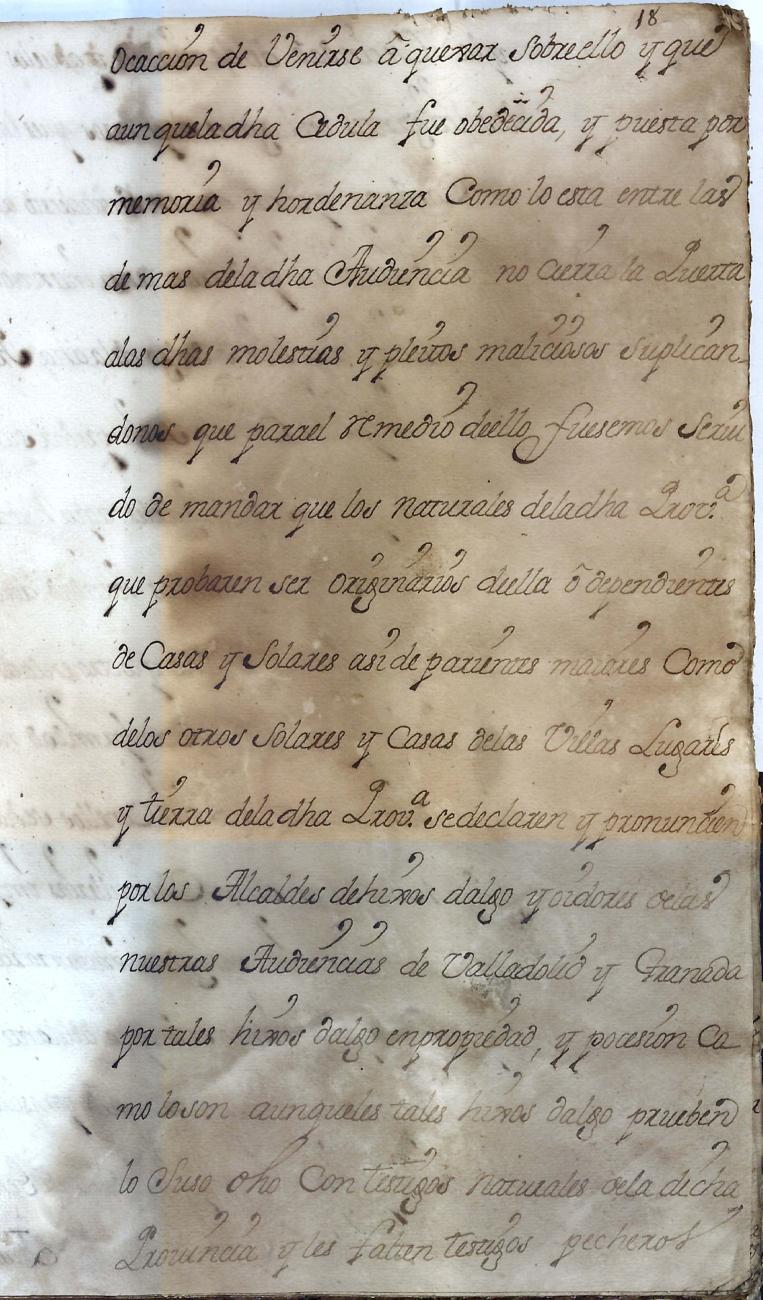 18
Ocacción de Venirse â quexar sobreello y que
aun queladha Cedula fue obedecida, y puesta por
memoria y hordenanza Como lo esta entre las
de mas deladha Audiencia no cierra la Puerta
alas dhas molestias y pleitos maliciosos suplican-
donos que parael remedio deello fuesemos Servi
do de mandar que los naturales deladha Prov.ª
que probaren ser originarios deella ô dependientes
de Casas y Solares asi de parientes maiores Como
delos otros Solares y Casas delas Villas Lugares
y tierra deladha Prov.ª sedeclaren y pronuncien
por los Alcaldes dehixos dalgo y oidores delas
nuestras Audiencias de Valladolid y Granada
por tales hixos dalgo enpropiedad, y pocesion Co
mo loson aunqueles tales hixos dalgo prueben
lo Suso dho Con testigos naturales dela dicha
Provincia y les falten testigos pecheros